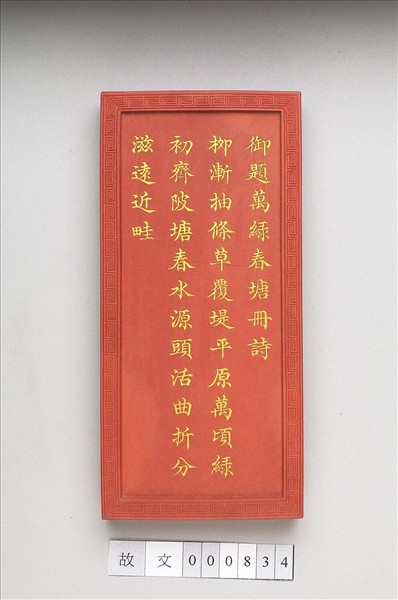 御題萬綠春塘冊詩
柳漸抽條草覆堤平原萬頃綠
初齊陂塘春水源頭活曲折分
滋遠近畦
故文000834